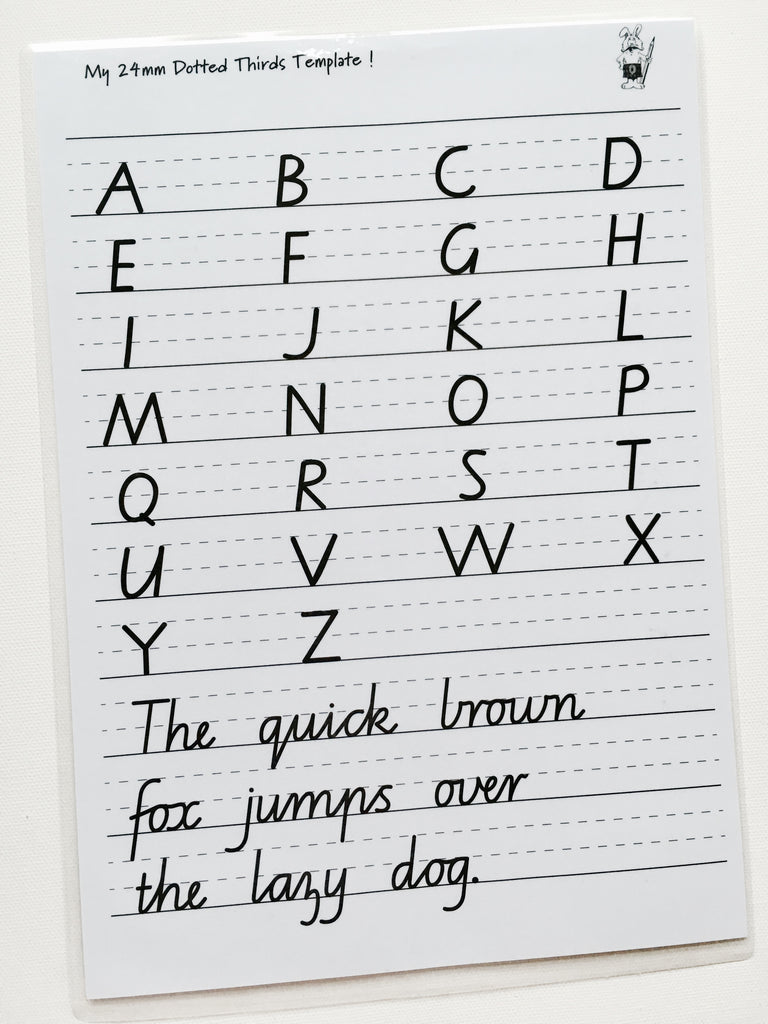 My 24mm Dotted Thirds Template !
A B C D
E F G H
I J K L
M N O P
Q R S T
U V W X
Y Z
The quick brown
fox jumps over
the lazy dog.